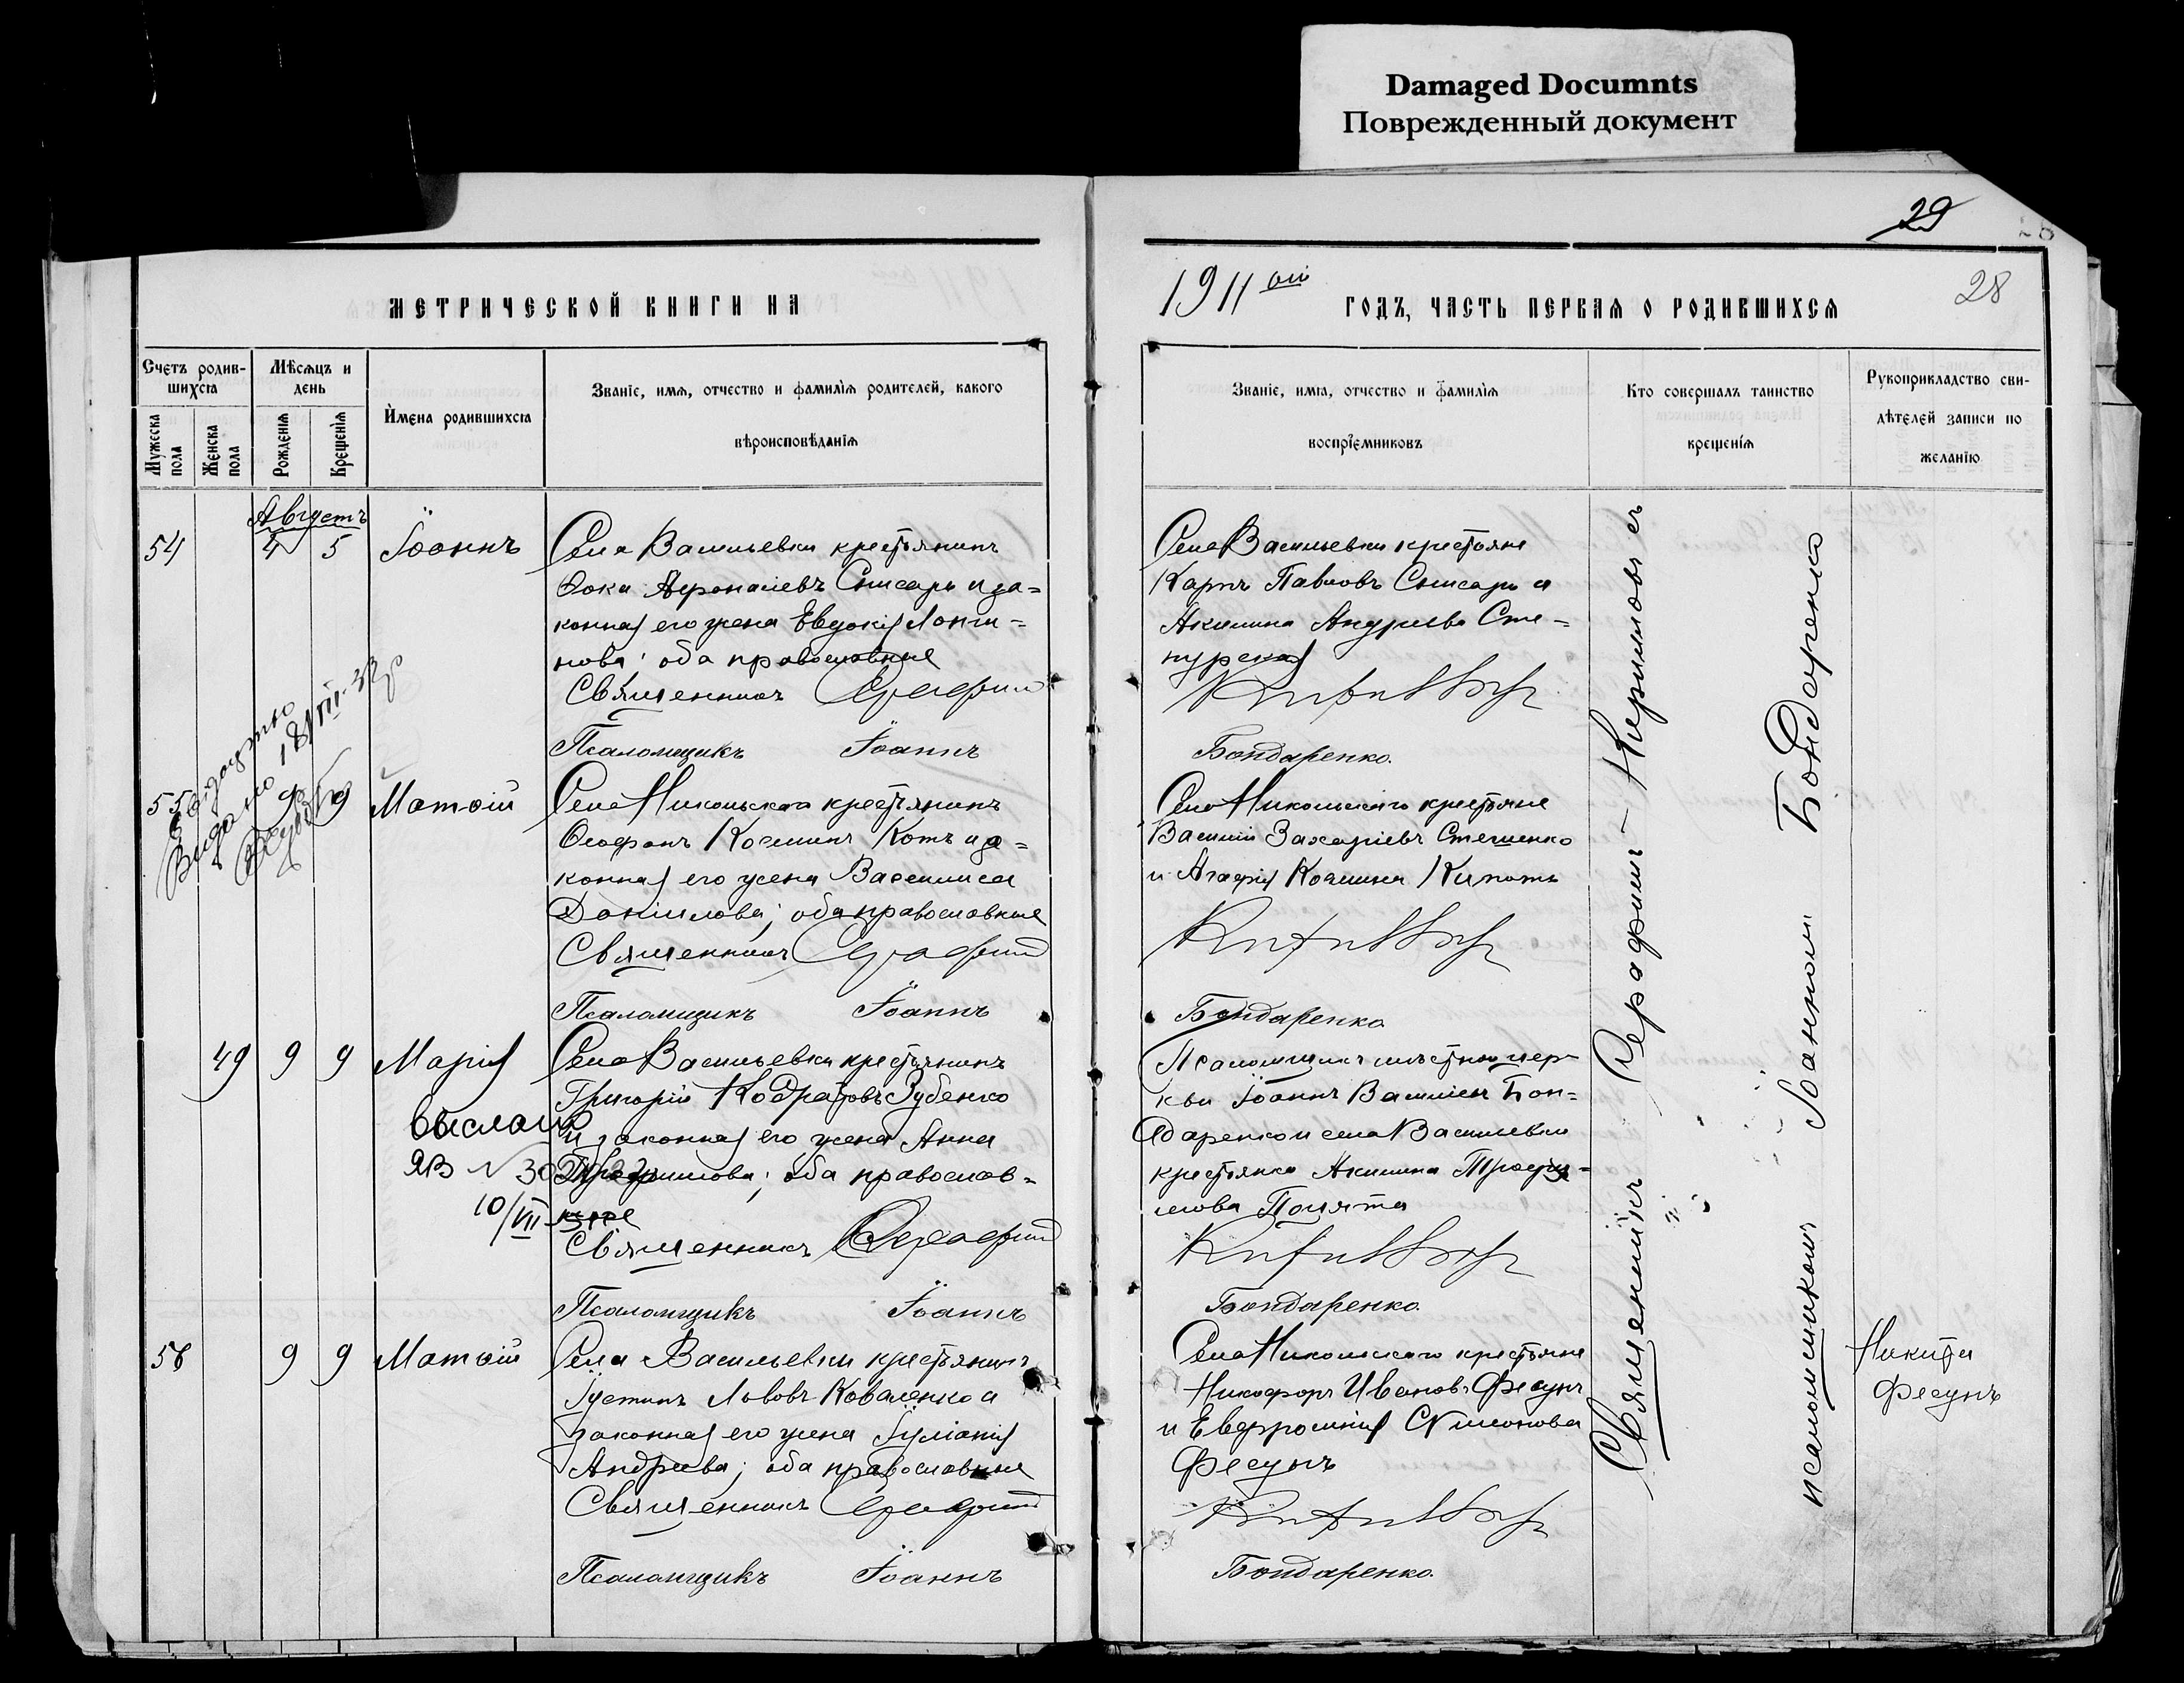 Damaged Documnts
Поврежденный документ
29
28
МЕТРИЧЕСКОЙ КНИГИ НА
1911 ый
ГОДЪ, ЧАСТЬ ПЕРВАЯ О РОДИВШИХСЯ
28
Счетъ родив-
шихся
Мѣсяцъ и
день
Мужеска
пола
Женска
пола
Рожденія
Крещенія
Имена родившихся
Званіе, имя, отчество и фамилія родителей, какого
вѣроисповѣданія
Званіе, имя, отчество и фамилія
воспріемниковъ
Кто совершалъ таинство
крещенія
Рукоприкладство сви-
дѣтелей записи по
желанію
Августъ
54
4 5
Іоаннъ
Села Васильевки крестьянинъ
Фока Снисарь и за=
конная его жена Евдокія Лонги=
нова; оба православные
Священникъ Серафим
Псаломщикъ Іоаннъ
Села Васильевки крестьяне
Карпъ Павловъ Снисарь и
Акилина Андреева Сте=
пурская
Бондаренко.
55
9 9
Матѳій
Села Никольскаго крестьянинъ
Ѳеофанъ Космин Котъ и за=
конная его жена Василиса
Даніилова; оба православные
Священникъ Серафим
Псаломщикъ Іоаннъ
Села Никольскаго крестьяне
Василій Захаріевъ Стешенко
и Агафія Космина
Бондаренко
Видано 18/VIII-
49 9 9
Марія
Села Васильевки крестьянинъ
Григорій Кодратовъ Зубенко
и законная его жена Анна
Трофимова; оба православ=
ные
Священникъ Серафим
Псаломщикъ Іоаннъ
выслан
ЯВ
10/VII
Псаломщикъ мѣстной цер-
кви Іоаннъ Василіев Бон=
даренко и села Васильевки
крестьянка Акилина Трофи=
мова
Бондаренко.
56
9 9
Матѳій
Села Васильевки крестьянинъ
Іустинъ Львовъ Коваленко и
законная его жена Іуліанія
Андреева; оба православные
Священникъ Серафим
Псаломщикъ Іоаннъ
Села Никольскаго крестьяне
Никифоръ Ивановъ Фесунъ
и Евфросинія Симонова
Фесунъ
Бондаренко.
Священникъ Серафимъ
псаломщикомъ Іоанном Бондаренко
Никита
Фесунъ